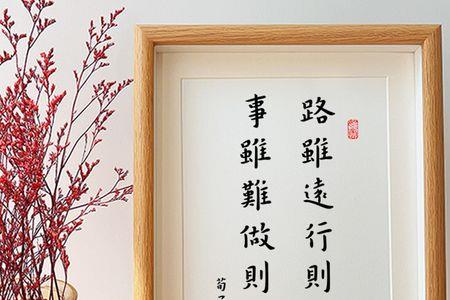 路雖遠行則
事雖難做則
荀